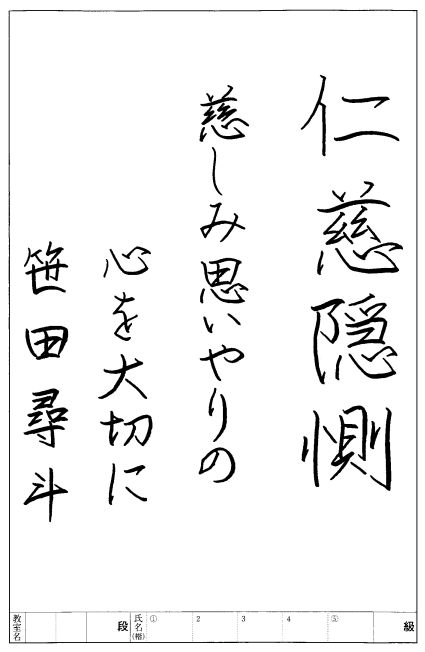 仁慈隠惻
慈しみ思いやりの
心を大切に
笹田尋斗
級
⑤
4
3
2
①
氏名(楷)
段
教室名